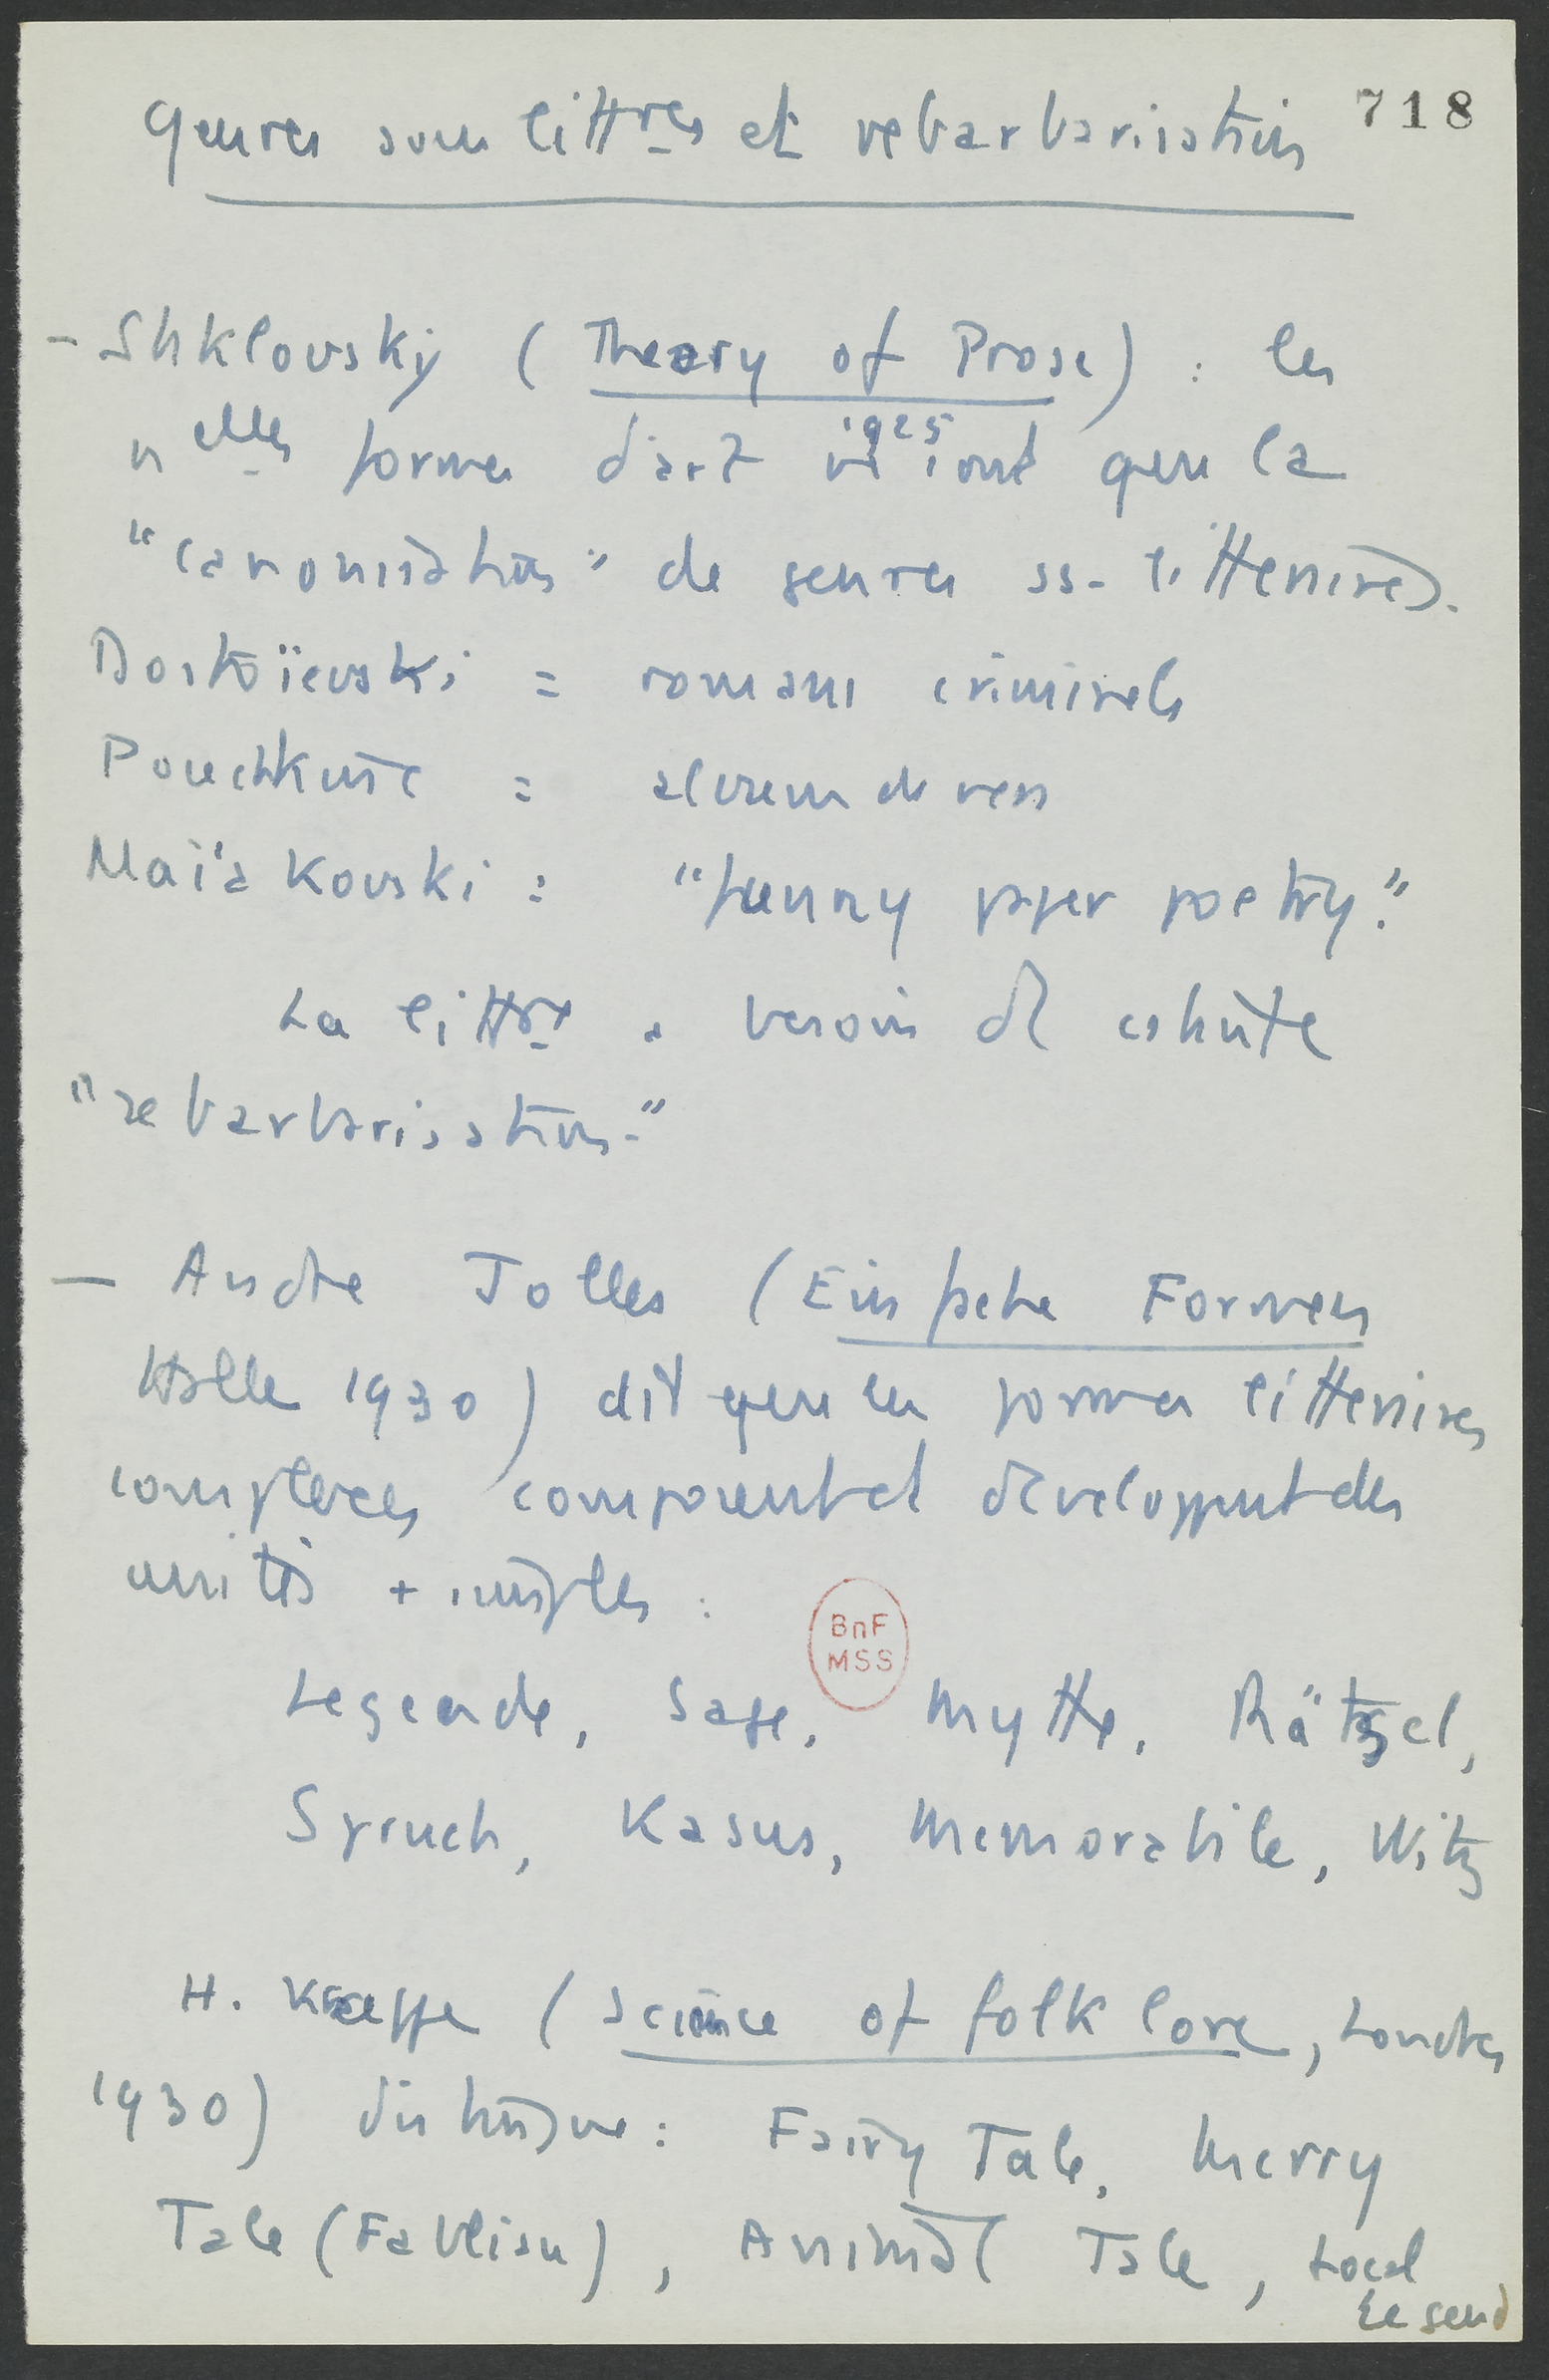 718
Genres sous littres et rebarbarisation
- Shklovsky (Theory of Prose) : les
1925
nelles formes d'art ne sont que la
"canonisation" de genres ss-littéraires.
Dostoïevski = romans criminels
Pouchkine = albums de vers
Maïakovski : "funny paper poetry."
La littre a besoin de cette
"rebarbarisation."
— Andre Jolles (Einfache Formen
Halle 1930) dit que les formes littéraires
complexes comportent et développent des
unités + simples :
Legende, Sage, Mythe, Rätsel,
Spruch, Kasus, Memorabile, Witz
BnF
MSS
H. Krappe (Science of folklore, Londres
1930) distingue : Fairy Tale, Merry
Tale (Fabliau), Animal Tale, Local
Legend